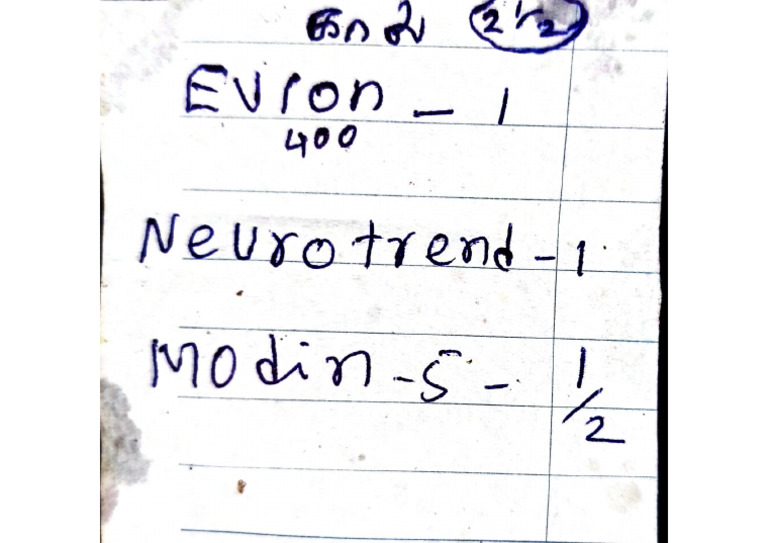 காலை 2 1/2
Evion - 1
400
Neurotrend - 1
Modin - 5 - 1/2